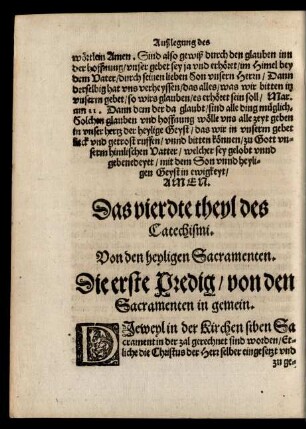 Außlegung des
wörtlein Amen. Sind also gewiß durch den glauben inn
der hoffnung/ vnser gebet sey ja vnd erhöret/ im Himel bey
dem Vater/ durch seinen lieben Son vnsern Herrn/ Dann
derselbig hat vns verheyssen/ das alles/ was wir bitten in
vnserm gebet/ so wirs glauben/ es erhöret sein soll/ Mar.
am 11. Dann dem der da glaubt/ sind alle ding müglich.
Solchen glauben vnd hoffnung wölle vns alle zeyt geben
in vnser hertz der heylige Geyst/ das wir in vnserm gebet
keck vnd getrost ruffen/ vnnd bitten können/ zu Gott vn-
serm himlischen Vatter/ welcher sey gelobt vnnd
gebenedeyet/ mit dem Son vnnd heyli-
gen Geyst in ewigkeyt/
AMEN.
Das vierdte theyl des
Catechismi.
Von den heyligen Sacramenten.
Die erste Predig/ von den
Sacramenten in gemein.
DIeweyl in der Kirchen siben Sa
crament in der zal gerechnet sind worden/ Et-
liche die Christus der Herr selber eingesetzt vnd
zu ge-